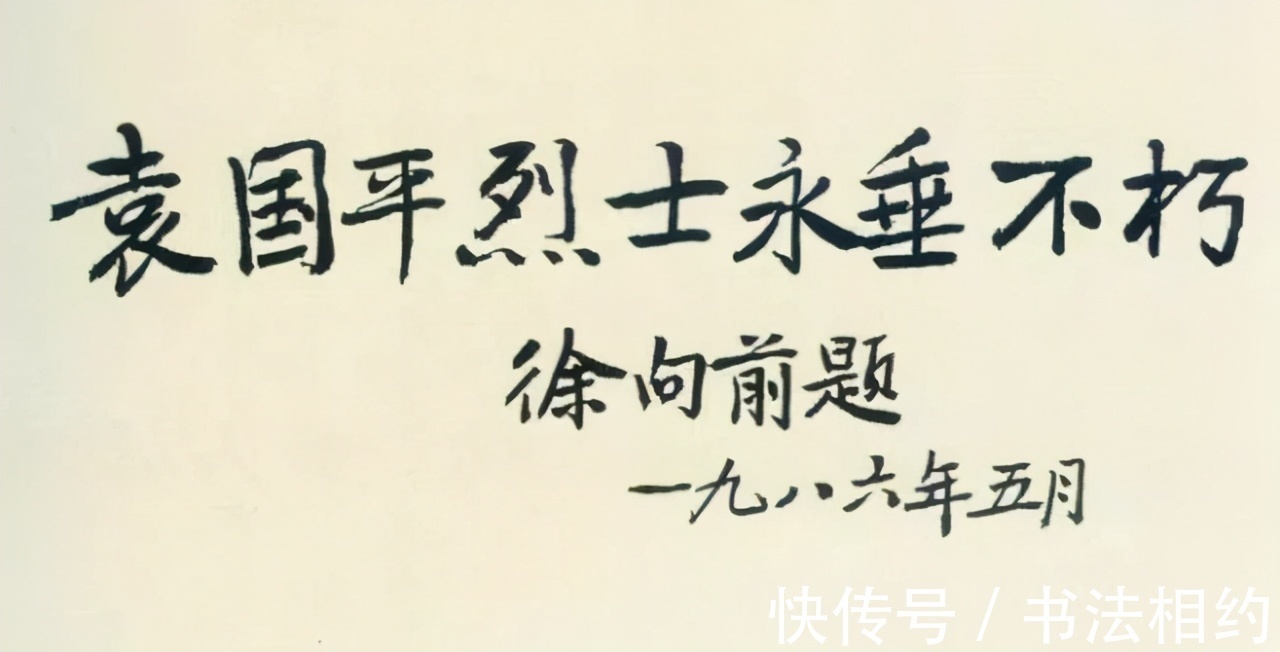 袁国平烈士永垂不朽
徐向前题
一九八六年五月
快传号 / 书法相约